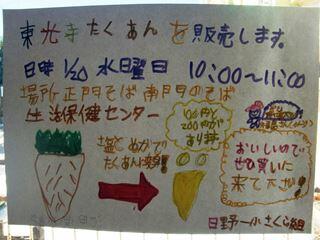 東光寺たくあんを販売します。
日時 1/20 水曜日 10:00〜11:00
場所 正門そば 南門のそば
生活保健センター
100円と
200円が
あります
塩とぬかで
たくあんに変身!
おいしいので
ぜひ買いに
来て下さい
日野一小さくら組